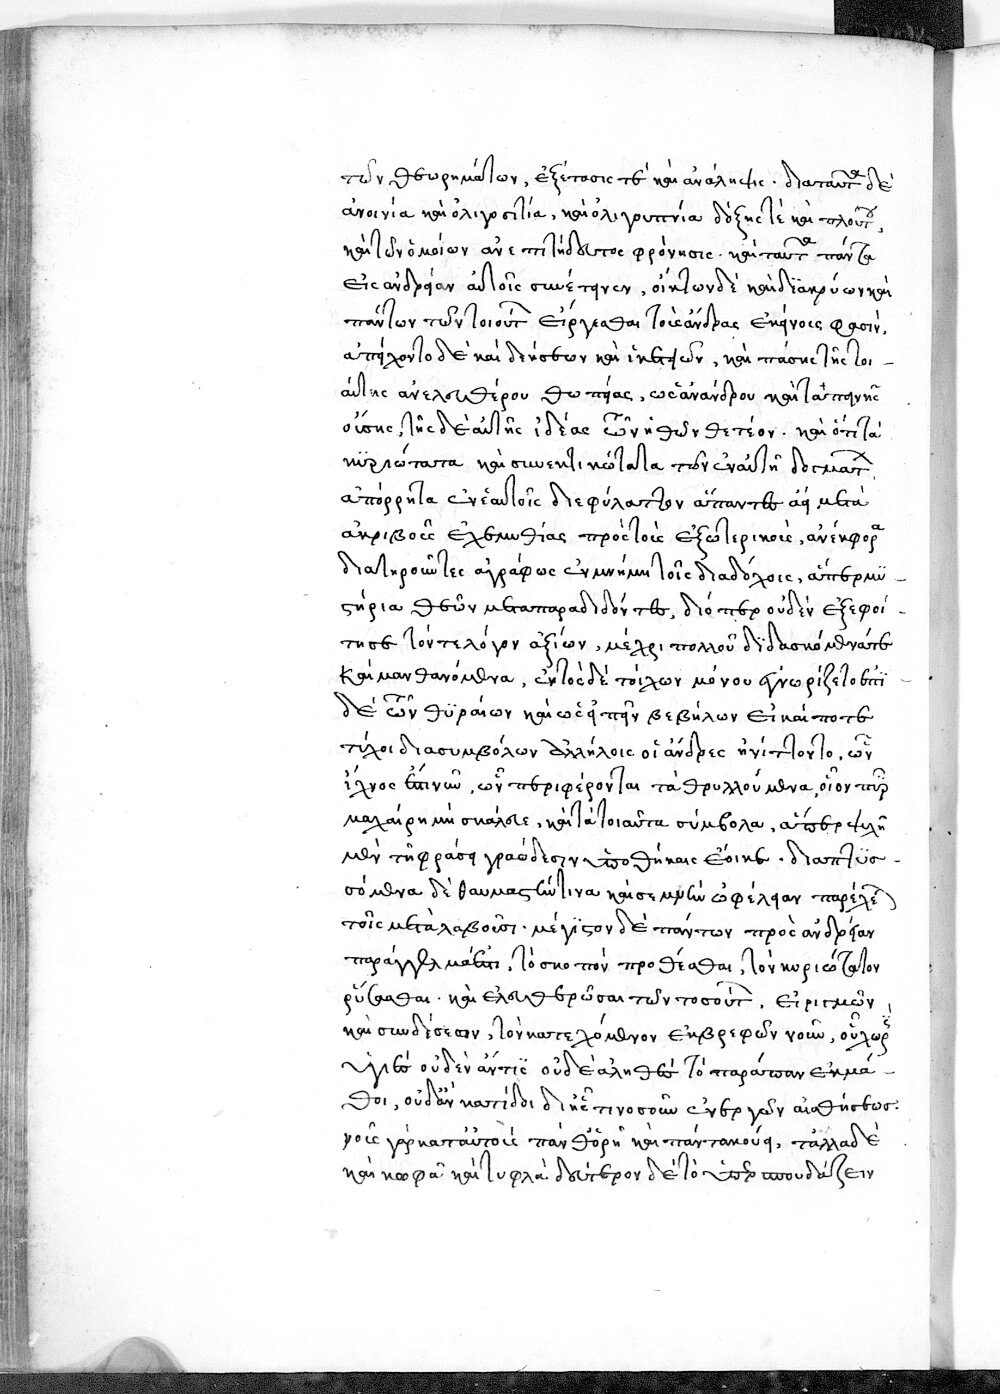 τῶν θεωρημάτων, ἐξέτασίς τε καὶ ἀνάληψις. διὰ ταῦτα δὲ
ἀοινία καὶ ὀλιγοσιτία, καὶ ὀλιγοϋπνία δόξης τὲ καὶ πλούτου,
καὶ τῶν ὁμοίων ἀνεπιτήδευτος φρόνησις. καὶ ταῦτα πάντα
εἰς ἀνδρείαν αὐτοῖς συνέτεινεν, οἴκτων δὲ καὶ δακρύων καὶ
πάντων τῶν τοιούτων εἴργεσθαι τοὺς ἄνδρας ἐκείνους φασίν,
ἀπείχοντο δὲ καὶ δεήσεων καὶ ἱκετειῶν, καὶ πάσης τῆς τοι-
αύτης ἀνελευθέρου θωπείας, ὡς ἀνάνδρου καὶ ταπεινῆς
οὔσης, τῆς δὲ αὐτῆς ἰδέας τῶν ἠθῶν θετέον. καὶ ὅτι τὰ
κυριώτατα καὶ συνεκτικώτατα τῶν ἐν αὐτῇ δογμάτων
ἀπόρρητα ἐν ἑαυτοῖς διεφύλαττον ἅπαντες ἀεὶ μετὰ
ἀκριβοῦς ἐχεμυθίας πρὸς τοὺς ἐξωτερικοὺς, ἀνέκφορα
διατηροῦντες ἀγράφως ἐν μνήμῃ τοῖς διαδόχοις, ἅπερ μυ-
στήρια θεῶν μεταπαραδιδόντες, διόπερ οὐδὲν ἐξεφοί-
τησε τόν τε λόγον ἀξίων, μέχρι πολλοῦ διδασκόμενά τε
καὶ μανθανόμενα, ἐντὸς δὲ τοίχων μόνον ἐγνωρίζετο ἐπὶ
δὲ τῶν θυραίων καὶ ὡς εἰπεῖν βεβήλων εἰ καί ποτε
τύχοι διὰ συμβόλων ἀλλήλοις οἱ ἄνδρες ᾐνίττοντο, ὧν
ἴχνος ἐπὶ νῦν, ὧν περιφέρονται τὰ θρυλλούμενα, οἷον πῦρ
μαχαίρῃ μὴ σκάλευε, καὶ τὰ τοιαῦτα σύμβολα, ἅπερ ψιλῇ
μὲν τῇ φράσει γραώδεσιν ὑποθήκαις ἔοικε. διαπτυσ-
σόμενα δὲ θαυμαστήν τινα καὶ σεμνὴν ὠφέλειαν παρέχεται
τοῖς μεταλαβοῦσι. μέγιστον δὲ πάντων πρὸς ἀνδρείαν
παράγγελμά ἐστι, τὸ σκοπὸν προθέσθαι, τὸν κυριώτατον
ῥύσασθαι. καὶ ἐλευθερῶσαι τῶν τοσούτων, εἱργμῶν
καὶ συνδέσεων, τὸν κατεχόμενον ἐκ βρεφῶν νοῦν, οὗ χωρὶς
ὑγιὲς οὐδὲν ἄν τις οὐδὲ ἀληθὲς τὸ παράπαν ἐκμά-
θοι, οὐδ' ἂν κατίδοι δι' ἧς τινοσοῦν ἐνεργῶν αἰσθήσεως.
νοῦς γὰρ κατ' αὐτοὺς πάνθ' ὁρῇ καὶ πάντ' ἀκούει, τἆλλα δὲ
καὶ κωφὰ καὶ τυφλά. δεύτερον δὲ τὸ ὑπερσπουδάζειν